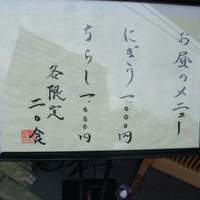 お昼のメニュー
にぎり 一、〇〇〇円
ちらし 一、〇〇〇円
各限定
二〇食